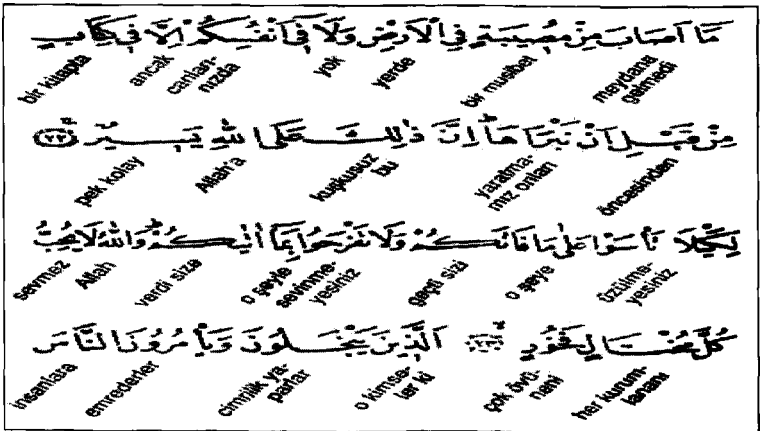 مَٓا اَصَابَ مِنْ مُص۪يبَةٍ فِي الْاَرْضِ وَلَا ف۪ٓي اَنْفُسِكُمْ اِلَّا ف۪ي كِتَابٍ
meydana gelmedi bir musibet yerde yok canları-nızda ancak bir kitapta
مِنْ قَبْلِ اَنْ نَبْرَاَهَاۜ اِنَّ ذٰلِكَ عَلَى اللّٰهِ يَس۪يرٌۚ ﴿٢٢﴾
öncesinden yaratma-mız onları bu kuşkusuz Allah'a pek kolay
لِكَيْلَا تَأْسَوْا عَلٰى مَا فَاتَكُمْ وَلَا تَفْرَحُوا بِمَٓا اٰتٰيكُمْۜ وَاللّٰهُ لَا يُحِبُّ
üzülme-yesiniz o şeye geçti sizi sevinme-yesiniz o şeyle verdi size Allah sevmez
كُلَّ مُخْتَالٍ فَخُورٍۙ ﴿٢٣﴾ اَلَّذ۪ينَ يَبْخَلُونَ وَيَأْمُرُونَ النَّاسَ
her kurum-lananı çok övü-neni o kimse-ler ki cimrilik ya-parlar emrederler insanlara